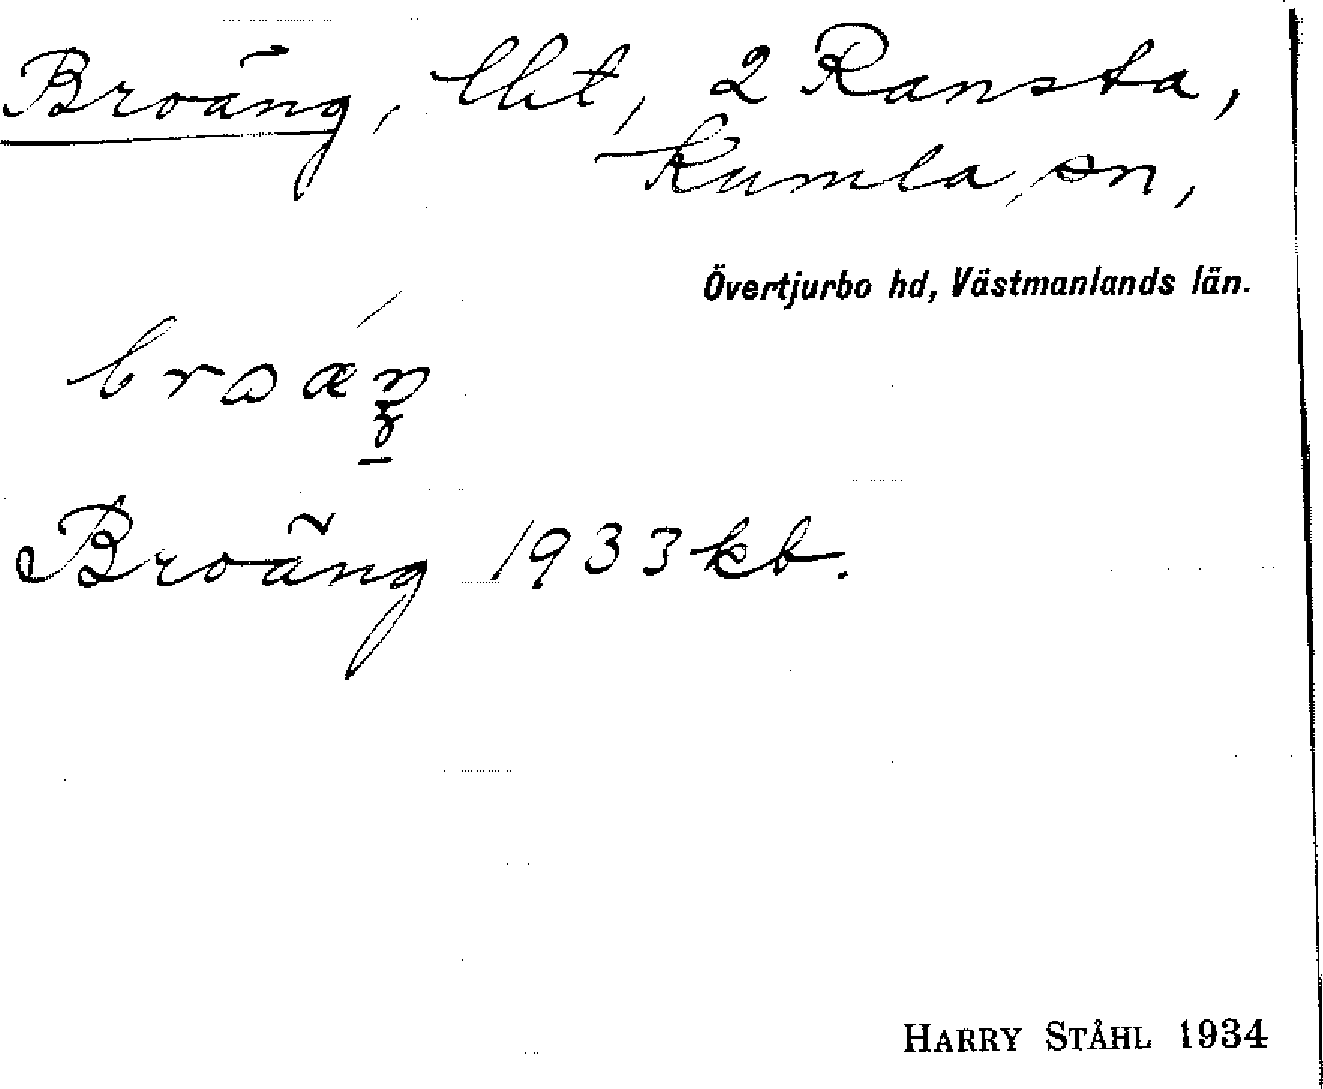 Broäng, lht, 2 Ransta,
Kumla sn,
Övertjurbo hd, Västmanlands län.
Broäng 1933 kb.
HARRY STÅHL 1934